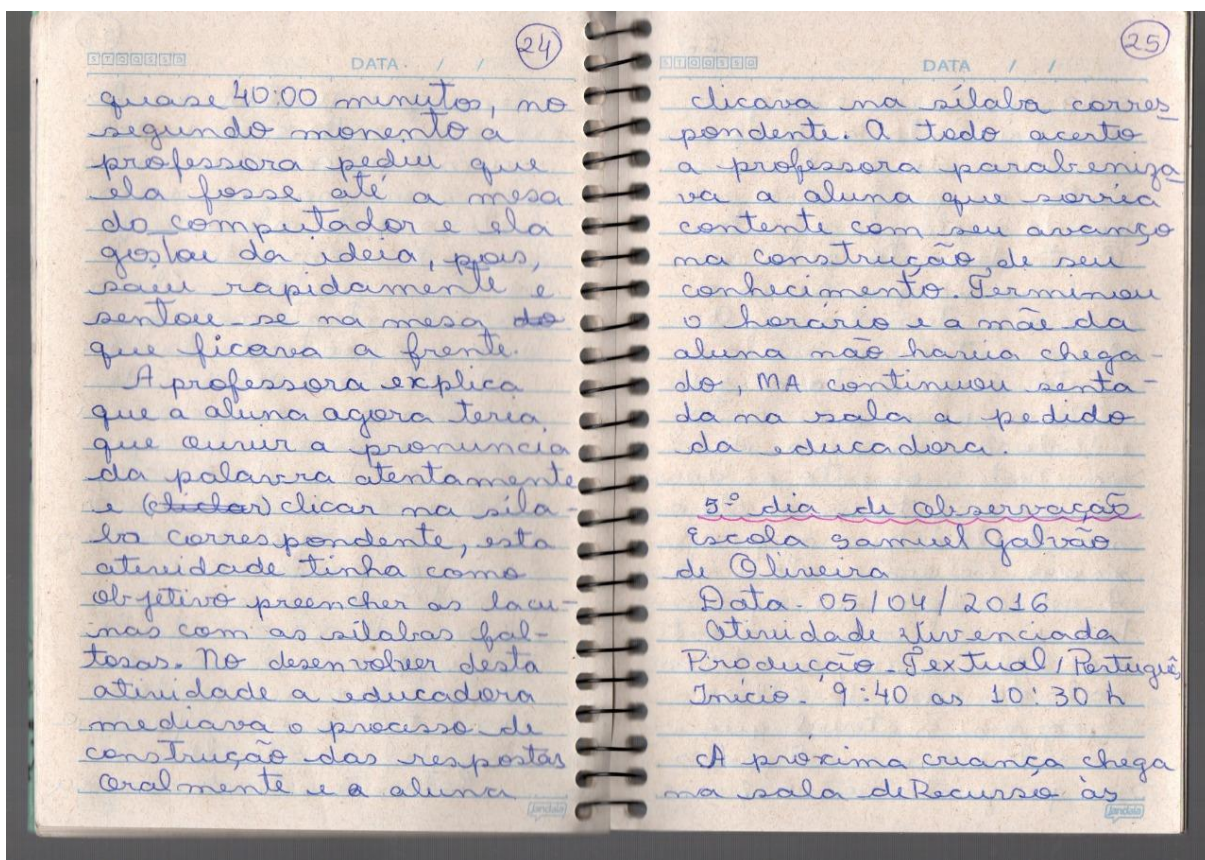 24
STQQSSD
DATA / /
quase 40:00 minutos, no
segundo monento a
professora pediu que
ela fosse até a mesa
do computador e ela
gostou da ideia, pois,
saiu rapidamente e
sentou-se na mesa do
que ficava a frente.
A professora explica
que a aluna agora teria
que ouvir a pronuncia
da palavra atentamente
e (clidar) clicar na síla-
ba correspondente, esta
atividade tinha como
objetivo preencher as lacu-
nas com as sílabas fal-
tosas. No desenvolver desta
atividade a educadora
mediava o processo de
construção das respostas
oralmente e a aluna
jandaia
25
STQQSSD
DATA / /
clicava na sílaba corres
pondente. A todo acerto
a professora parabeniza
va a aluna que sorria
contente com seu avanço
na construção de seu
conhecimento. Terminou
o horário e a mãe da
aluna não havia chega-
do, MA continuou senta-
da na sala a pedido
da educadora.
5º dia de observação
Escola Samuel Galvão
de Oliveira
Data - 05/04/2016
Atividade vivenciada
Produção-Textual/Português
Início - 9:40 as 10:30 h
A próxima criança chega
na sala de Recurso às
jandaia